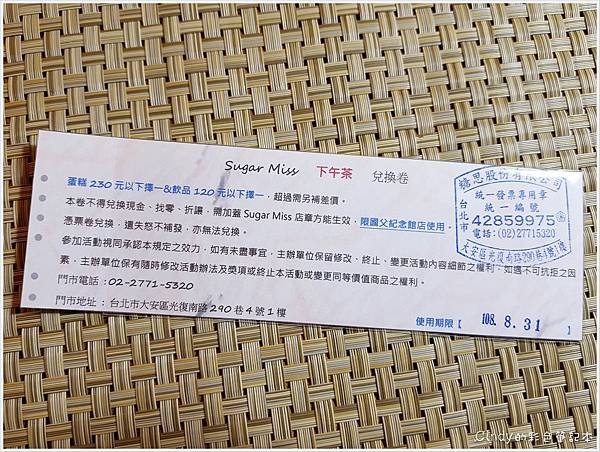 Sugar Miss 下午茶 兌換卷
蛋糕 230 元以下擇一&飲品 120 元以下擇一，超過需另補差價。
本卷不得兌換現金、找零、折讓，需加蓋 Sugar Miss 店章方能生效，限國父紀念館店使用。
憑票卷兌換，遺失恕不補發，亦無法兌換。
參加活動視同承認本規定之效力，如有未盡事宜，主辦單位保留修改、終止、變更活動內容細節之權利，如遇不可抗拒之因
素，主辦單位保有隨時修改活動辦法及獎項或終止本活動或變更同等價值商品之權利。
門市電話：02-2771-5320
門市地址：台北市大安區光復南路 290 巷 4 號 1 樓
使用期限【 108. 8. 31 】
糖思股份有限公司
統一發票專用章
統一編號
42859975
電話:(02)27715320
台北市
大安區光復南路290巷4號1樓
Cindy的彩色筆記本